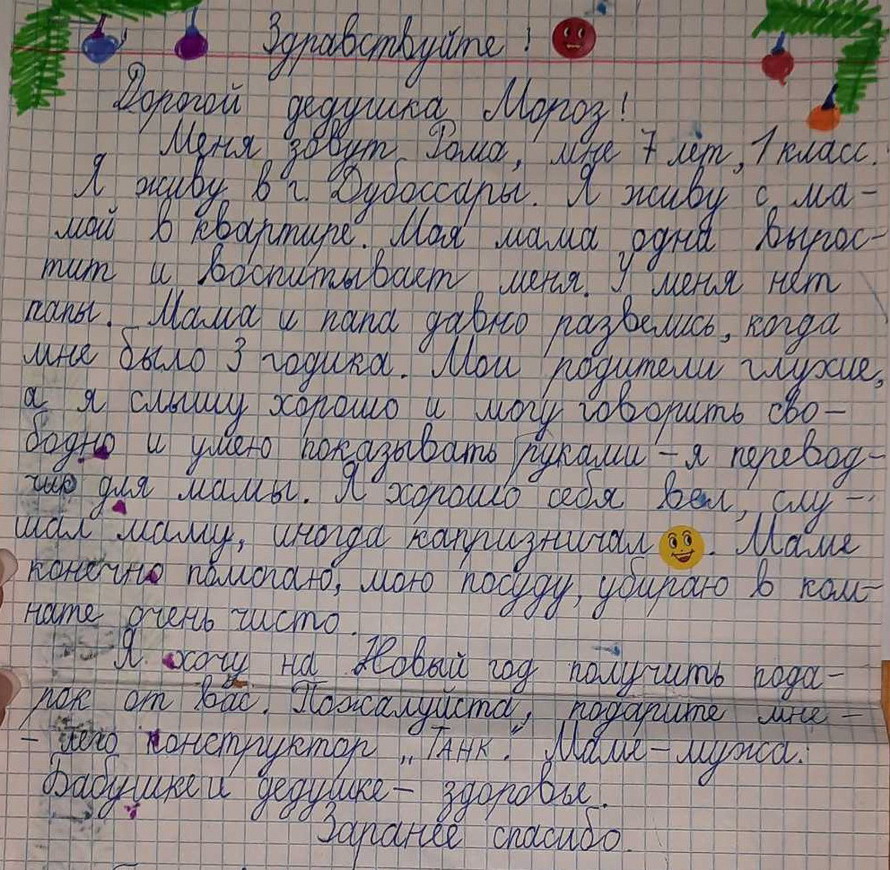 Здравствуйте!
Дорогой дедушка Мороз!
Меня зовут Рома, мне 7 лет, 1 класс.
Я живу в г. Дубоссары. Я живу с ма-
мой в квартире. Моя мама одна вырос-
тит и воспитывает меня. У меня нет
папы. Мама и папа давно развелись, когда
мне было 3 годика. Мои родители глухие,
а я слышу хорошо и могу говорить сво-
бодно и умею показывать руками - я перевод-
чик для мамы. Я хорошо себя вел, слу-
шал маму, иногда капризничал. Маме
конечно помогаю, мою посуду, убираю в ком-
нате очень чисто.
Я хочу на Новый год получить пода-
рок от вас. Пожалуйста, подарите мне -
- лего конструктор "Танк". Маме - мужа.
Бабушке и дедушке - здоровье.
Заранее спасибо.